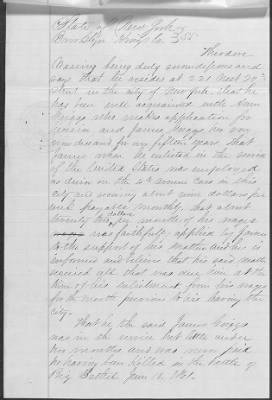 State of New York
Brooklyn Kings Co } SS
Theodore
being duly sworn deposes and
says that he resides at 221 West 29th
Street in the city of New York that he
has been well acquainted with Ann
Griggs who makes application for
pension and James Griggs her son
now deceased for fifteen years that
James when he enlisted in the service
of the United States was employed
as driver on the 4th avenue Cars in this
city and receiving about nine dollars per
week payable monthly that about
twenty two dollars pr months of his wages
was faithfully applied by James
to the support of his mother and he is
informed and believes that his said mother
received all that was due him at the
time of his enlistment from his wages
for the month previous to his leaving the
City.
That he the said James Griggs
was in the service but little under
two months and was never paid
he having been killed in the battle of
Big Bethel June 10, 1861.